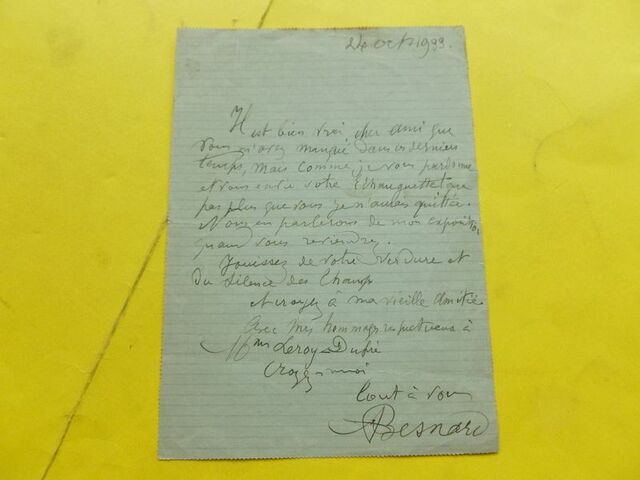 24 oct 1933.
Il est bien vrai, cher ami que
vous m'avez manqué dans ces derniers
temps, mais comme je vous pardonne
et vous envie votre Echauguette que
pas plus que vous je n'aurais quittée.
Nous en parlerons de mon exposition
quand vous reviendrez.
Jouissez de votre verdure et
du silence des Champs
et croyez à ma vieille amitié
avec mes hommages respectueux à
Mme Leroy-Dupré
Croyez-moi
tout à vous
ABesnard